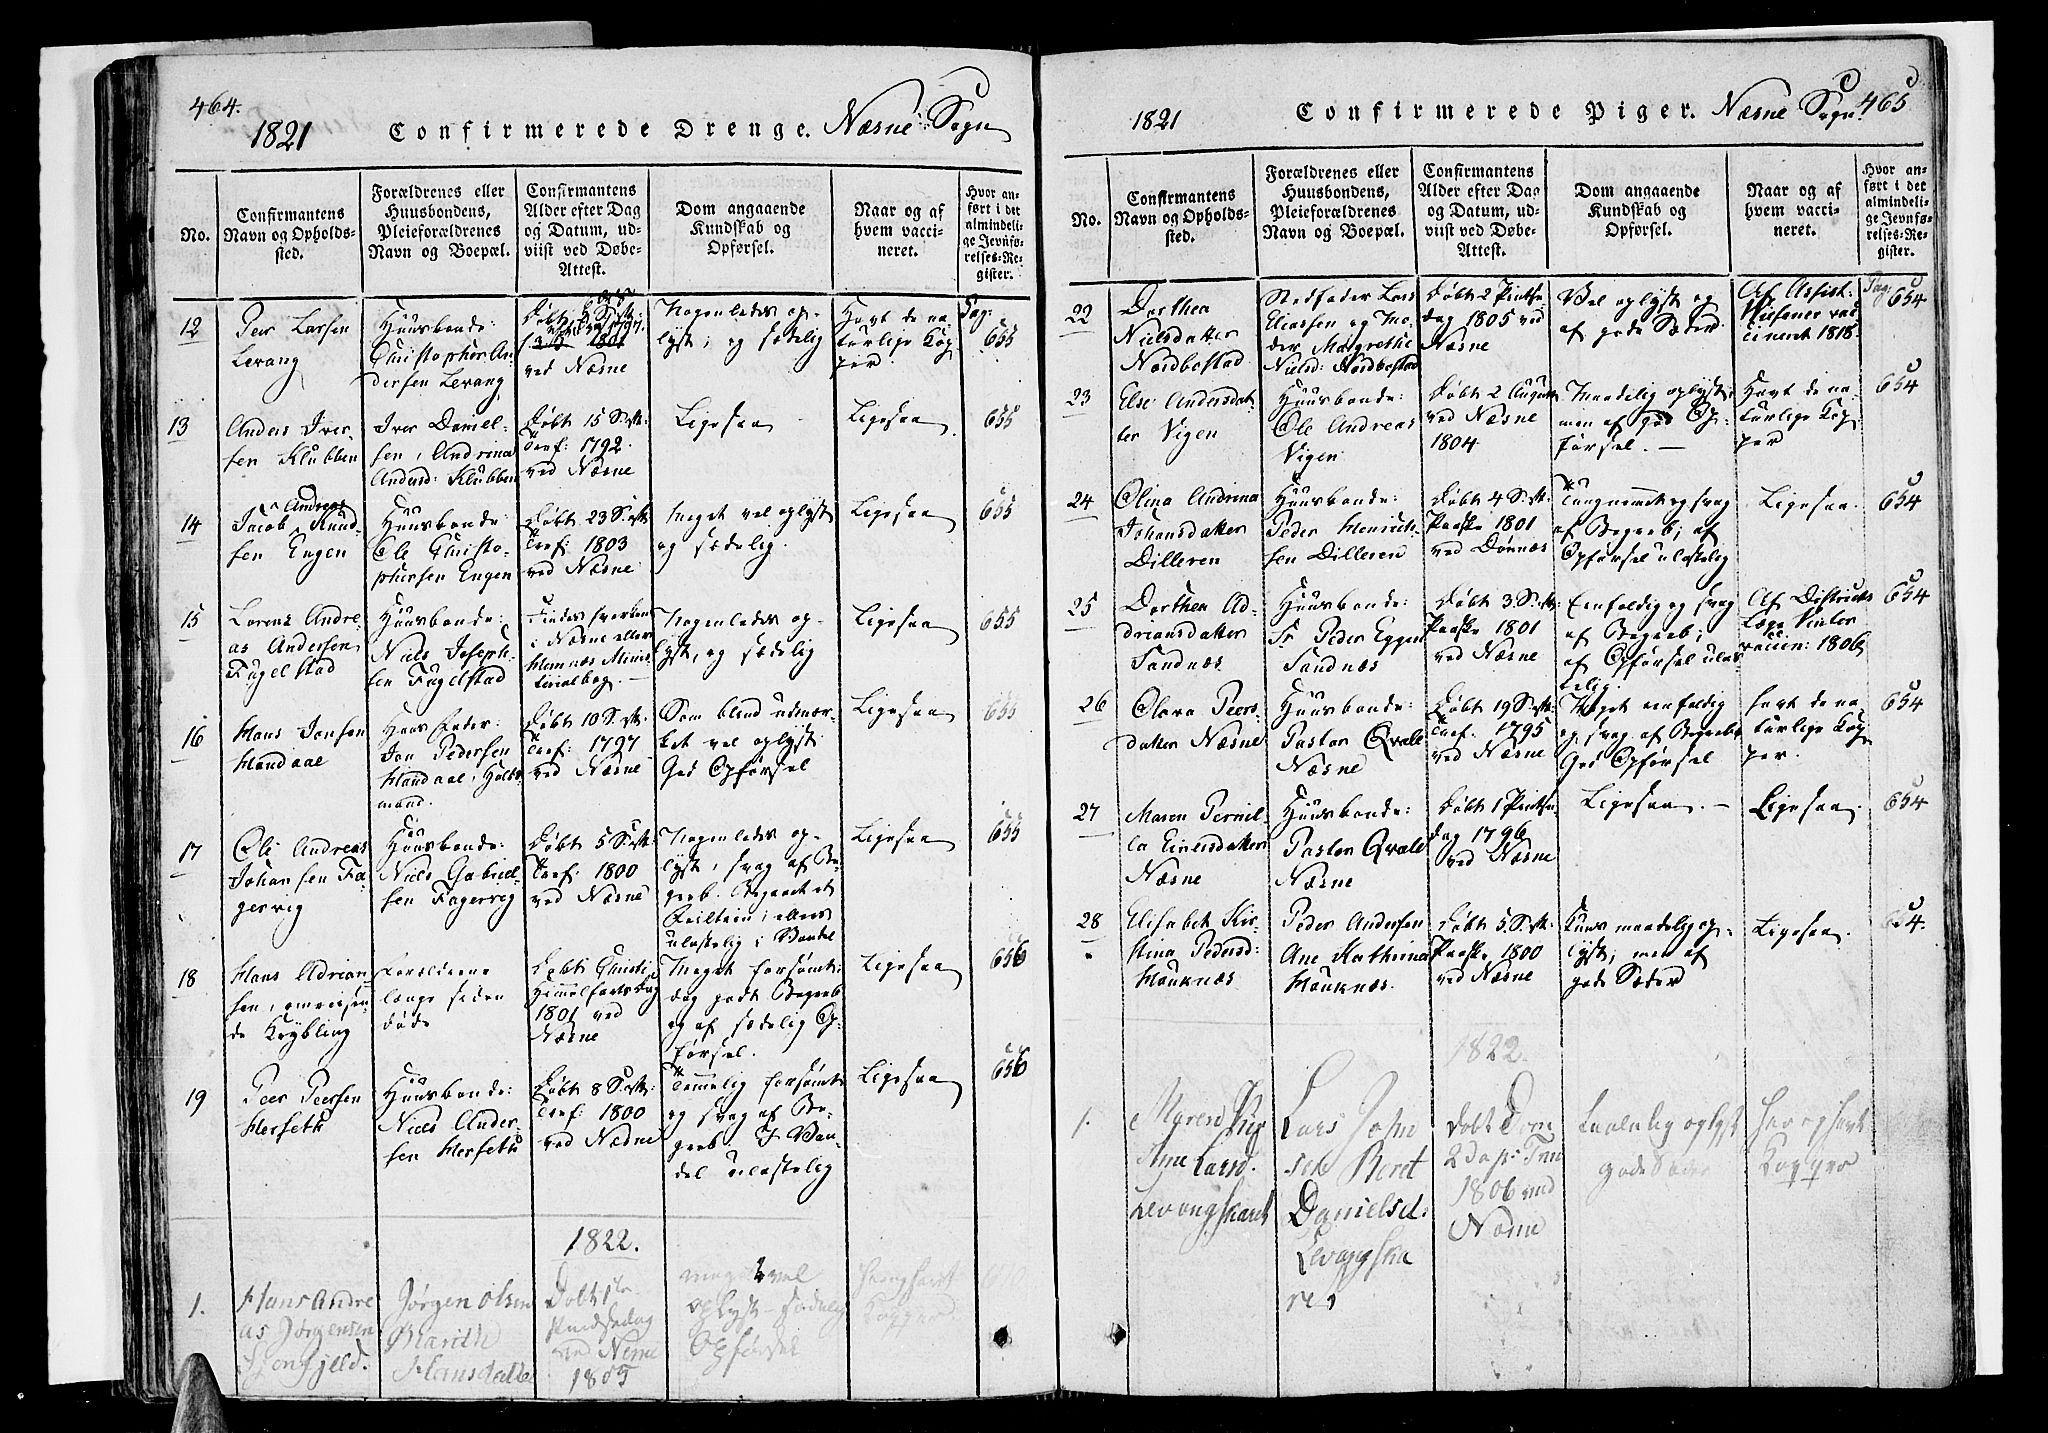 464.
1821 Confirmerede Drenge. Næsne Sogn
No.
Confirmantens
Navn og Opholds-
sted.
Forældrenes eller
Huusbondens,
Pleieforældrenes
Navn og Boepæl.
Confirmantens
Alder efter Dag
og Datum, ud-
viist ved Døbe-
Attest.
Dom angaaende
Kundskab og
Opførsel.
Naar og af
hvem vacci-
neret.
Hvor an-
ført i det
almindeli-
ge Jevnfø-
relses-Re-
gister.
12
Peer Larsen
Levang
Huusbonde:
Christopher An
dersen Levang
ved Næsne
Nogenledes op-
lyst; og sædelig
Havt de na
turlige Kop
per.
Pag:
655
13
Anders Iver-
sen Klubben
Iver Daniel-
sen, Andrina
Andersd: Klubben
Døbt 15 S. eft:
Tref: 1792.
ved Næsne
Ligesaa
Ligesaa
655
14
Andreas
Jacob Knud
sen Engen
Huusbonde:
Ole Christo-
phersen Engen
Døbt 23 S. eft:
Tref: 1803
ved Næsne
Meget vel oplyst
og sædelig.
Ligesaa
655
15
Lorens Andre-
as Andersen
Fugelstad
Huusbonde:
Niels Joseph-
sen Fugelstad
Findes hverken
i Næsne eller
Hemnæs Minis
terialbog.
Nogenledes op-
lyst, og sædelig
Ligesaa
655
16
Hans Jonsen
Handaae
Hans Fader:
Jon Pedersen
Handaae,
mand.
Døbt 10 S. eft:
Tref: 1797
ved Næsne
Som blind udmær-
ket vel oplyst.
God Opførsel
Ligesaa
655
17
Ole Andreas
Johansen Fa-
gervig
Huusbonde:
Niels Gabriel-
sen Fagervig
Døbt 5 S. eft:
Tref: 1800
ved Næsne
Nogenledes op-
lyst, svag af Be-
greb.
ulastelig i Vandel
Ligesaa
655
18
Hans Adrian-
sen, omreisen-
de Krybling
Forældrene
længe siden
døde
Døbt Christi
Himmelfarts Dag
1801 ved
Næsne
Meget forsømt:
dog godt Begreb
og af sædelig Op-
førsel.
Ligesaa
656
19
Peer Peersen
Herseth
Huusbonde:
Niels Ander-
sen Herseth
Døbt 8 S. eft:
Tref: 1800
ved Næsne
Temmelig forsømt
og svag af Be-
greb. I Van-
del ulastelig
Ligesaa
656
1822.
1.
Hans Andre
as Jørgensen
Jørgen Olsen
Marith
Hansdatter
Døbt 1ste
Pindsedag
ved Nesne
1805
meget vel
oplyst – sædelig
Opførsel
har havt
Kopper
1821 Confirmerede Piger. Næsne Sogn. 465
No.
Confirmantens
Navn og Opholds-
sted.
Forældrenes eller
Huusbondens,
Pleieforældrenes
Navn og Boepæl.
Confirmantens
Alder efter Dag
og Datum, ud-
viist ved Døbe-
Attest.
Dom angaaende
Kundskab og
Opførsel.
Naar og af
hvem vacci-
neret.
Hvor an-
ført i det
almindeli-
ge Jevnfø-
relses-Re-
gister.
22
Dorthea
Nielsdatter
Nordbostad
Stedfader Lars
Eliassen og Mo-
der Margrethe
Nielsd: Nordbostad
Døbt 2 Pintse-
dag 1805 ved
Næsne
Vel oplyst og
af gode Sæder
Af Assist:
vac
cineret 1818.
Pag:
654
23
Else Andersdat-
ter Vigen
Huusbonde:
Ole Andreas
Vigen
Døbt 2 August
ved Næsne
1804
Maadelig oplyst;
men af god Op-
førsel. –
Havt de na-
turlige Kop-
per
654
24
Olina Andrina
Johansdatter
Dilleren
Huusbonde:
Peder Henrich-
sen Dilleren
Døbt 4 S. eft:
Paaske 1801
ved Dønnæs
Tungnemmet og svag
af Begreb; af
Opførsel ulastelig
Ligesaa.
654
25
Dorthea A-
driansdatter
Sandnæs
Huusbonde:
Sr Peder Eggen
Sandnæs
Døbt 3. S. eft:
Paaske 1801
ved Næsne
Eenfoldig og svag
af Begreb;
af Opførsel ulas
telig.
Af Districts
Læge Vinter
vaccin: 1806
654
26
Olava Peers-
datter Næsne
Huusbonde:
Pastor Qvale
Næsne
Døbt 19 S. eft:
Tref. 1795
ved Næsne
Meget eenfoldig
og svag af Begreb
God Opførsel
havt de na
turlige Kop
per.
654
27
Maren Pernil-
la Einersdatter
Næsne
Huusbonde:
Pastor Qvale
Næsne
Døbt 1 Pintse
dag 1796
ved Næsne
Ligesaa. –
Ligesaa.
654
28
Elisabet Kir-
stina Pedersd:
Houknæs
Peder Andersen
Ane Kathrina
Houknæs.
Døbt 5. S. eft:
Paaske 1800
ved Næsne
Kuns maadelig op-
lyst; men af
gode Sæder
Ligesaa.
654.
1822.
1.
Maren
Ane Larsd.
Levangskaret
Lars John
sen Beret
Danielsd:
Levangska
ret
Døbt Dom
1806 ved
Nesne
oplyst
gode Sæder
har havt
Kopper